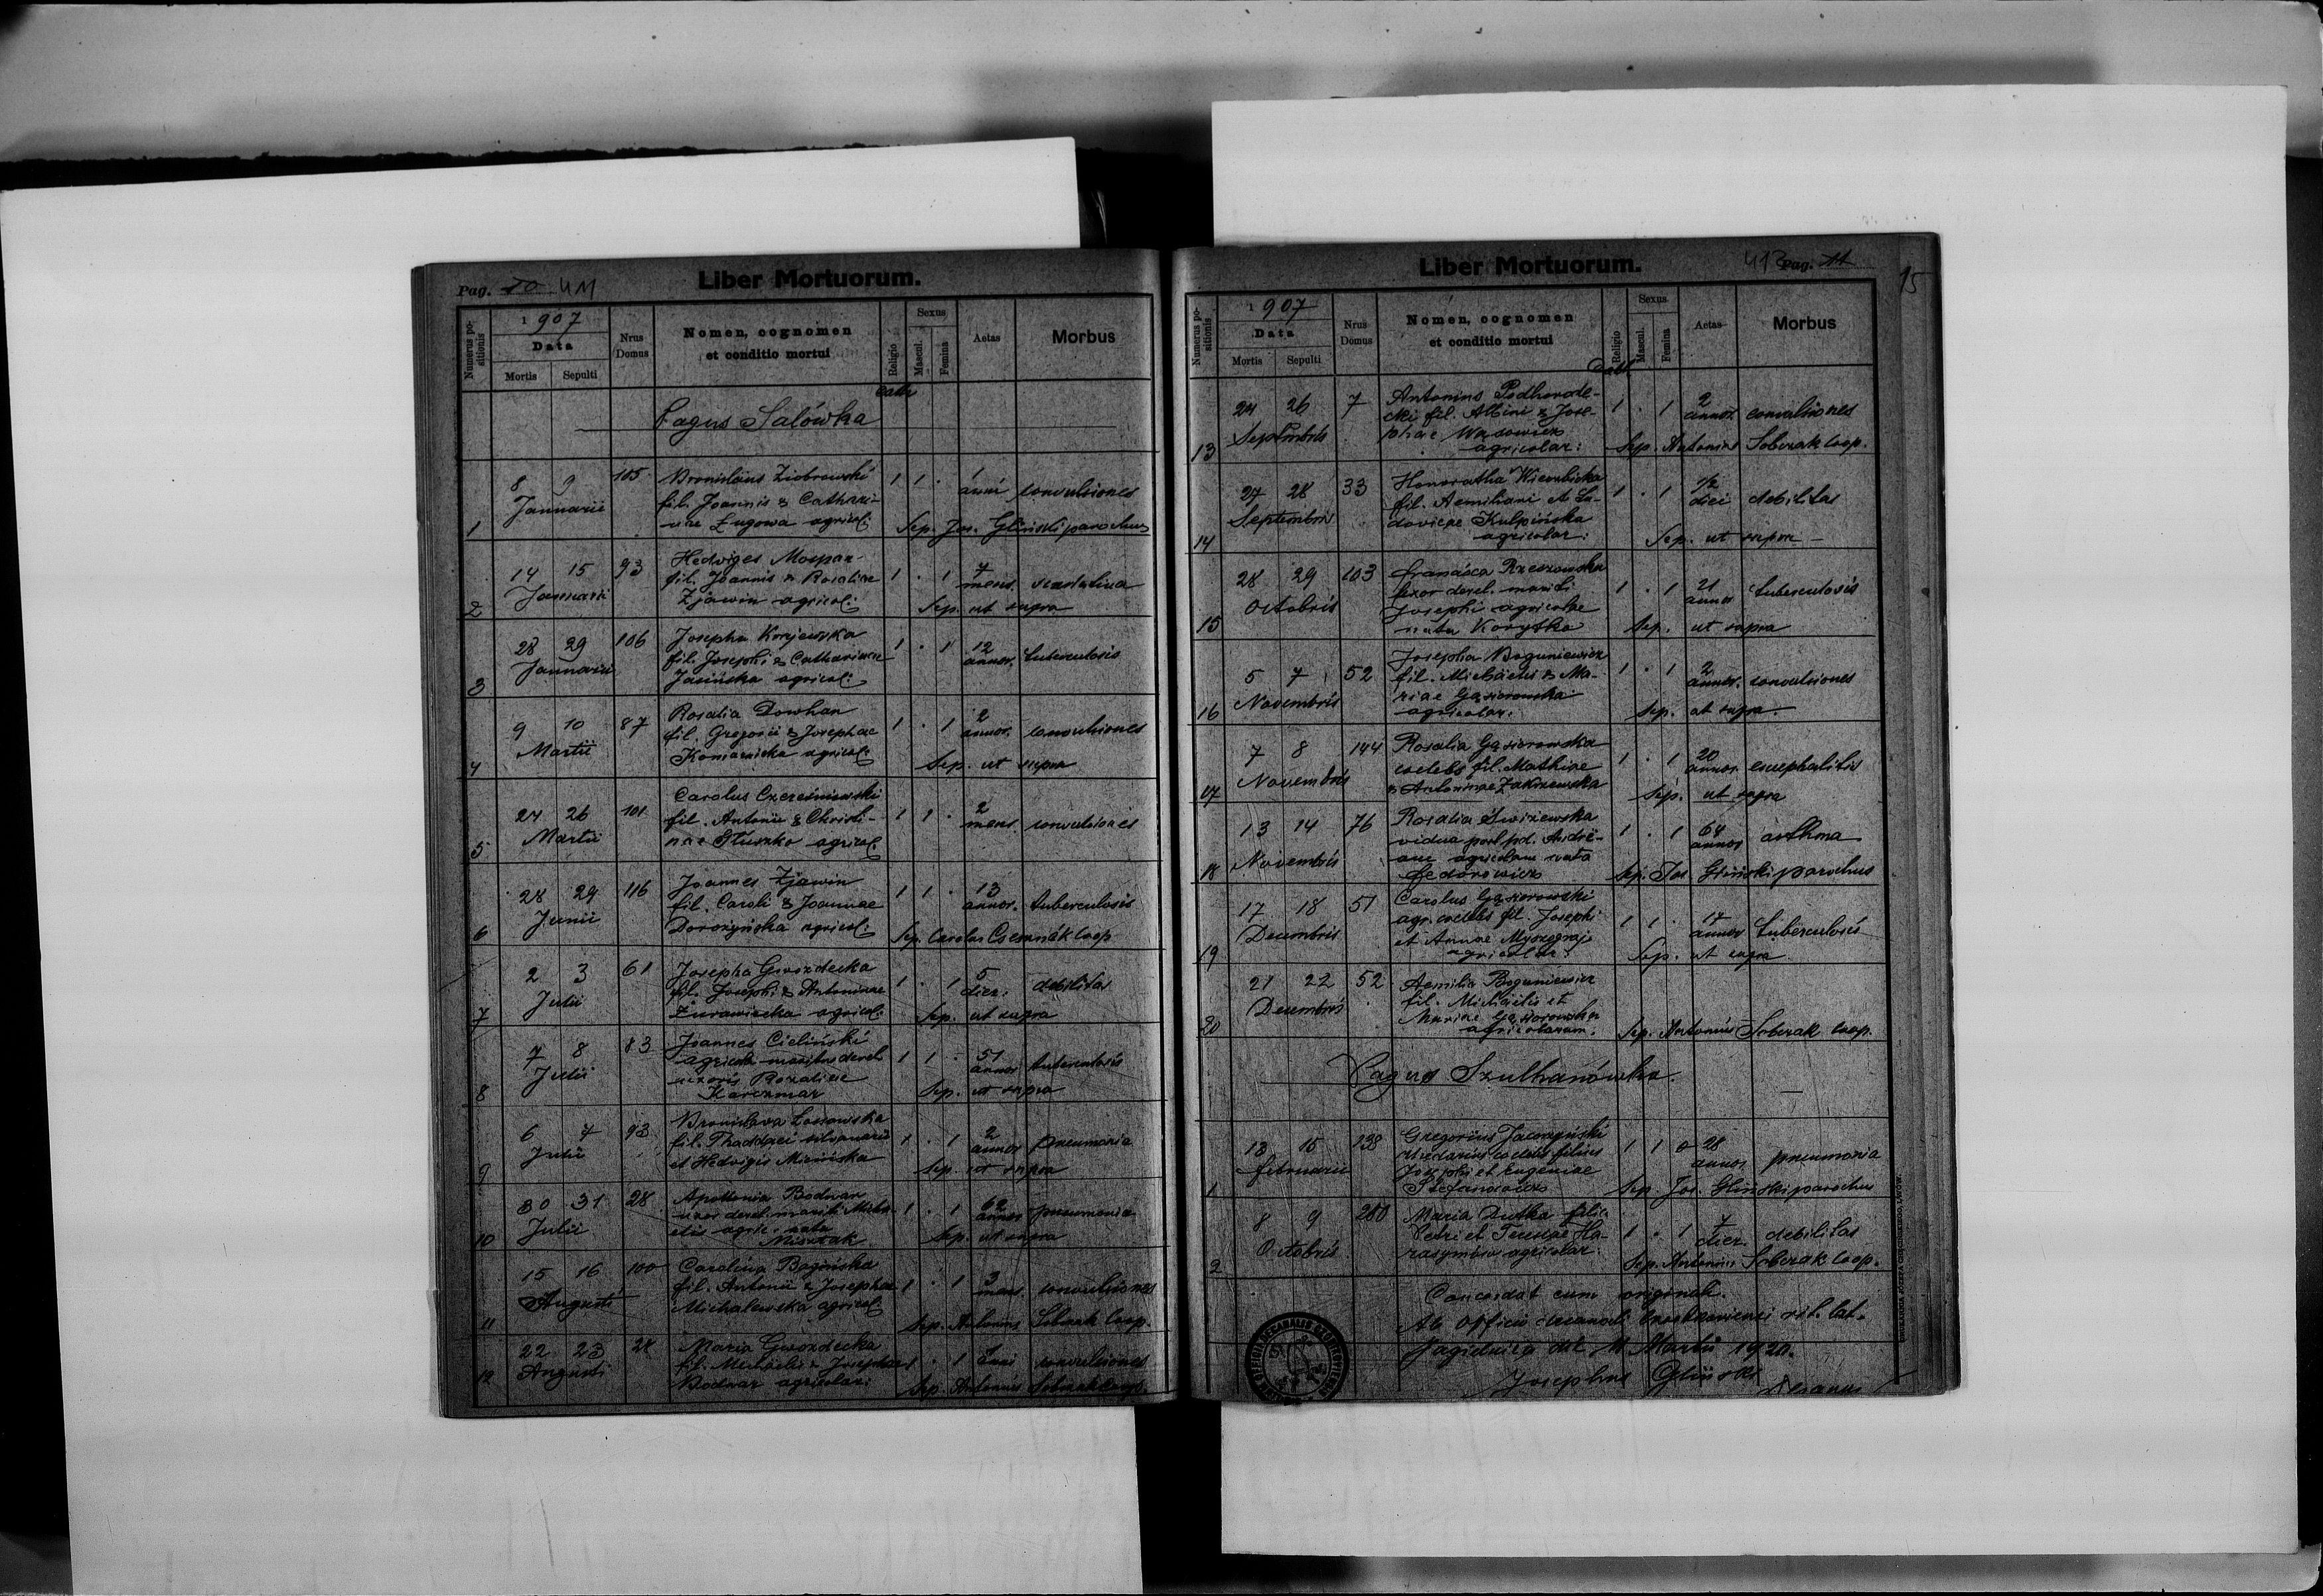 Pag. 10 411
Liber Mortuorum.
Numerus positionis
1907
Data
Mortis Sepulti
Nrus Domus
Nomen, cognomen
et conditio mortui
Religio
Sexus
Mascul. Femina
Aetas
Morbus
cath
Pagus Salówka
1 8 9 Januarii 105 Bronislaus Ziobrowski 1 1 . 1 anni convulsiones
fil. Joannis & Cathari-
nae Zugowa agricol:
Sep. Jos. Gliński parochus
2 14 15 Januarii 93 Hedviges Mospan 1 . 1 7 mens. scarlatina
fil. Joannis & Rosaliae
Zjawin agricol:
Sep. ut supra
3 28 29 Januarii 106 Josepha Koryjewska 1 . 1 12 annor. tuberculosis
fil. Josephi & Catharinae
Jasińska agricol:
4 9 10 Martii 87 Rosalia Dowhan 1 . 1 2 annor. convulsiones
fil. Gregorii & Josephae
Komarnicka agricol:
Sep. ut supra
5 24 26 Martii 101 Carolus Czereśniowski 1 1 . 2 mens. convulsiones
fil. Antonii & Christi-
nae Głuszko agricol:
6 28 29 Junii 116 Joannes Zjawin 1 1 . 13 annor. tuberculosis
fil. Caroli & Joannae
Dorożyńska agricol:
Sep. Carolus Csesznák coop
7 2 3 Julii 61 Josepha Gwozdecka 1 . 1 5 dier. debilitas
fil. Josephi & Antoninae
Żurawiecka agricol:
Sep. ut supra
8 7 8 Julii 83 Joannes Cieliński 1 1 . 51 annor tuberculosis
agricola maritus derel.
uxoris Rosaliae
Karczmar
Sep. ut supra
9 6 7 Julii 93 Bronislava Lossowska 1 . 1 2 annor pneumonia
fil. Thaddaei silvanarii
et Hedvigis Micińska
Sep. ut supra
10 30 31 Julii 28 Apollonia Bodnar 1 . 1 62 annor pneumonia
uxor derel. mariti Micha-
elis agric. nata
Misztak
Sep. ut supra
11 15 16 Augusti 100 Carolina Bagińska 1 . 1 3 mens. convulsiones
fil. Antonii & Josephae
Michalewska agricol:
Sep. Antonius Sobczak coop.
12 22 23 Augusti 24 Maria Gwozdecka 1 . 1 1 anni convulsiones
fil. Michaelis & Josephae
Bodnar agricolar:
Sep. Antonius Sobczak coop.
Liber Mortuorum.
412 Pag. 11
15
Numerus positionis
1907
Data
Mortis Sepulti
Nrus Domus
Nomen, cognomen
et conditio mortui
Religio
Sexus
Mascul. Femina
Aetas
Morbus
Cath
13 24 26 Septembris 7 Antonius Podhorode- 1 . 1 2 annor convulsiones
cki fil. Albini & Jose-
phae Wąsowicz
agricolar:
Sep. Antonius Sobczak coop.
14 27 28 Septembris 33 Honoratha Wierzbicka 1 . 1 1/2 diei debilitas
fil. Aemiliani et Lu-
dovicae Kulpińska
agricolar:
Sep. ut supra
15 28 29 Octobris 103 Francisca Rzeszowska 1 . 1 21 annor tuberculosis
uxor derel. mariti
Josephi agricolae
nata Korytko
Sep. ut supra
16 5 7 Novembris 52 Josepha Boguniewicz 1 . 1 2 annor. convulsiones
fil. Michaelis & Ma-
riae Gąsiorowska
agricolar:
Sep. ut supra.
17 7 8 Novembris 144 Rosalia Gąsiorowska 1 . 1 20 annor. encephalitis
coelebs fil. Mathiae
& Antoninae Zakrzewska
Sep. ut supra
18 13 14 Novembris 76 Rosalia Świżewska 1 . 1 64 annor asthma
vidua post pd. Andre-
am agricolam nata
Fedorowicz
Sep. Jos Gliński parochus
19 17 18 Decembris 51 Carolus Gąsiorowski 1 1 . 17 annor tuberculosis
agr. coelebs fil. Josephi
et Annae Myszograj
agricolar:
Sep. ut supra.
20 21 22 Decembris 52 Aemilia Boguniewicz
fil. Michaelis et
Mariae Gąsiorowska
agricolarum.
Sep. Antonius Sobczak coop.
Pagus Szulhanówka.
1 13 15 Februarii 138 Gregorius Jacorzyński 1 1 0 28 annor pneumonia
coelebs filius
Josephi et Eugeniae
Stefanowicz
Sep. Jos. Gliński parochus
2 8 9 Octobris 280 Maria Dutka filia 1 . 1 7 dier. debilitas
Petri et Teresiae Ha-
rasymów agricolar:
Sep. Antonius Sobczak coop.
Concordat cum originali.
Ab officio decanali rit. lat.
Jagielnica die 11 Martii 1920.
Josephus Gliński
decanus